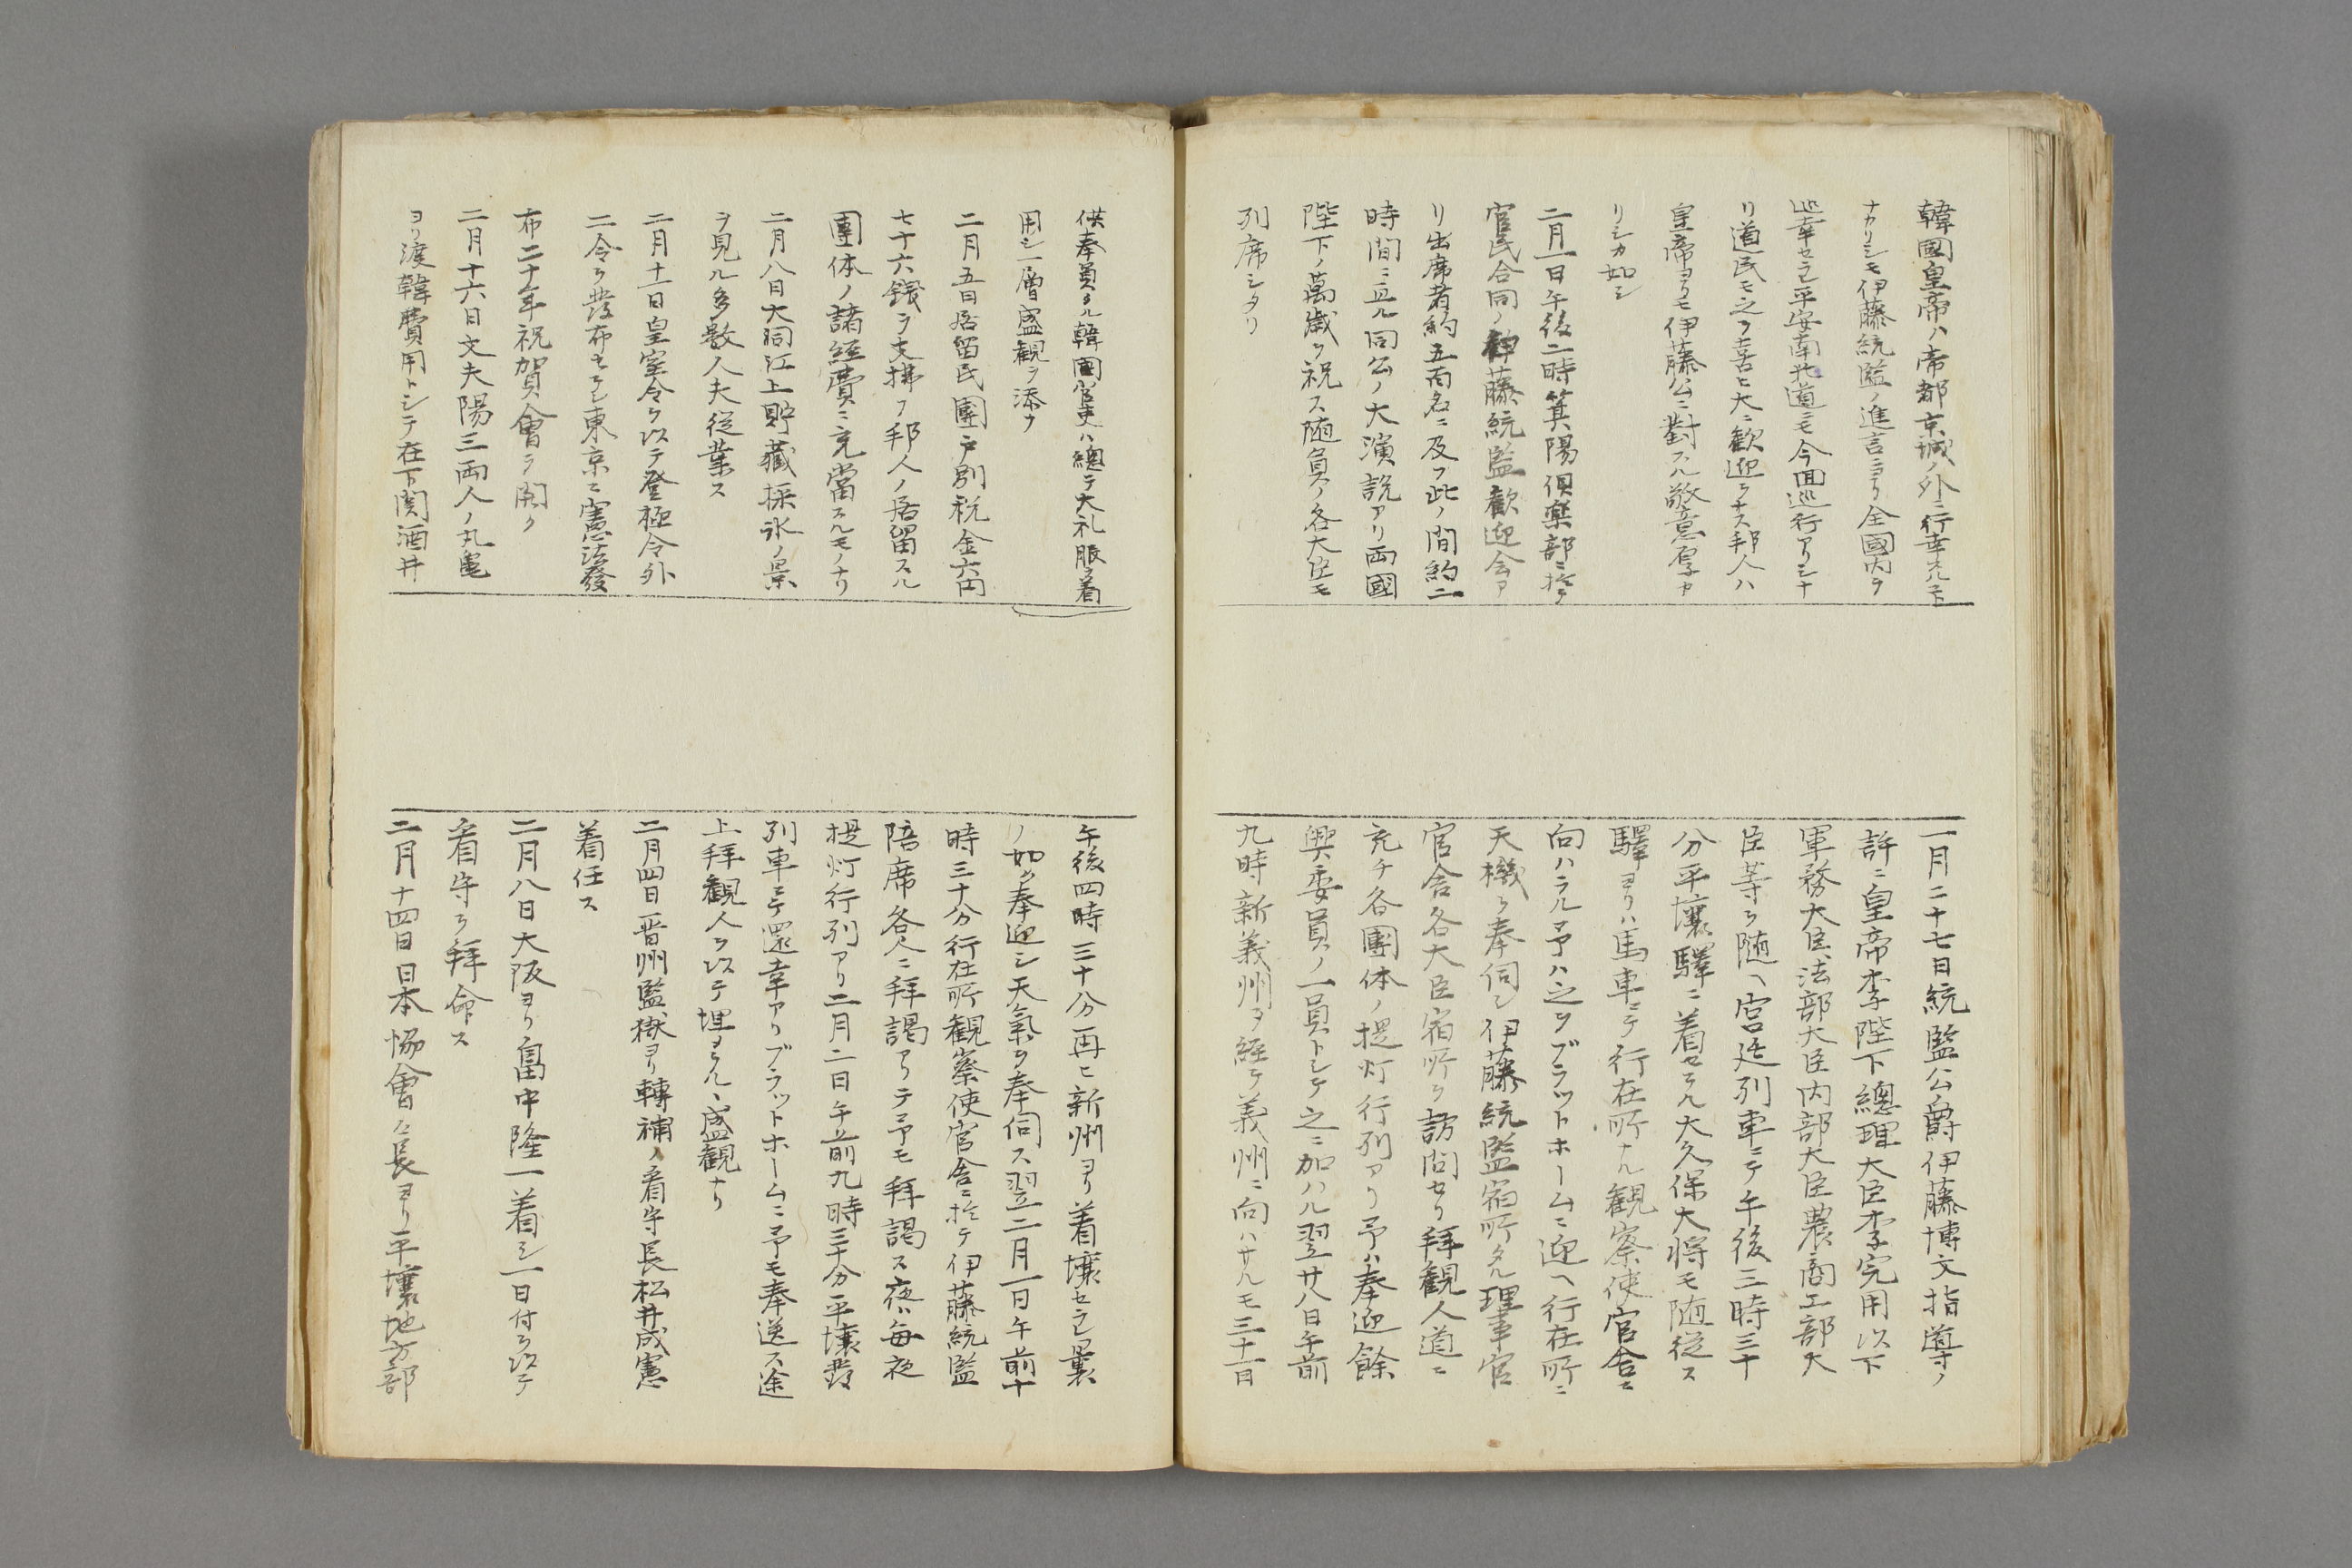 韓國皇帝ハ帝都京城ノ外ニ行幸スルヿ
ナカリシモ伊藤統監ノ進言ニヨリ全國内ヲ
巡幸セラレ平安南北道ニモ今回巡行アリシナ
リ道民モ之ヲ喜ヒ大ニ歓迎ヲナス邦人ハ
皇帝ヨリモ伊藤公ニ對スル敬意厚カ
リシカ如シ
二月一日午後二時箕陽倶楽部ニ於テ
官民合同ノ伊藤統監歓迎会ア
リ出席者約五百名ニ及フ此ノ間約二
時間ニ亘ル同公ノ大演説アリ両國
陛下ノ萬歳ヲ祝ス随員ノ各大臣モ
列席シタリ
一月二十七日統監公爵伊藤博文指導ノ
許ニ皇帝李陛下總理大臣李完用以下
軍務大臣法部大臣内部大臣農商工部大
臣等ヲ随ヘ宮廷列車ニテ午後三時三十
分平壤驛ニ着セラル大久保大将モ随従ス
驛ヨリハ馬車ニテ行在所ナル観察使官舎ニ
向ハラル予ハ之ヲプラットホームニ迎ヘ行在所ニ
天機ヲ奉伺シ伊藤統監宿所タル理事官
官舎各大臣宿所ヲ訪問セリ拜観人道ニ
充チ各團体ノ提灯行列アリ予ハ奉迎餘
興委員ノ一員トシテ之ニ加ハル翌廿八日午前
九時新義州ヲ経テ義州ニ向ハサルモ三十一日
供奉員タル韓國官吏ハ總テ大礼服ヲ着
用シ一層盛観ヲ添フ
二月五日居留民團戸別税金六円
七十六銭ヲ支拂フ邦人ノ居留スル
團体ノ諸経費ニ充當スルモノナリ
二月八日大同江上貯藏採氷ノ景
ヲ見ル多数人夫従業ス
二月十一日皇室令ヲ以テ登極令外
二令ヲ發布セラレ東京ニ憲法發
布二十年祝賀會ヲ開ク
二月十六日文夫陽三両人ノ丸亀
ヨリ渡韓費用トシテ在下関酒井
午後四時三十分再ヒ新州ヨリ着壤セラレ曩
ノ如ク奉迎シ天氣ヲ奉伺ス翌二月一日午前十
時三十分行在所観察使官舎ニ於テ伊藤統監
陪席各人ニ拜謁アリテ予モ拜謁ス夜ハ毎夜
提灯行列アリ二月二日午前九時三十分平壤發
列車ニテ還幸アリプラットホームニ予モ奉送ス途
上拜観人ヲ以テ埋ヨラル、盛観ナリ
二月四日晋州監獄ヨリ轉補ノ看守長松井成憲
着任ス
二月八日大阪ヨリ畠中隆一着シ一日付ヲ以テ
看守ヲ拜命ス
二月十四日日本協會々長ヨリ平壤地方部